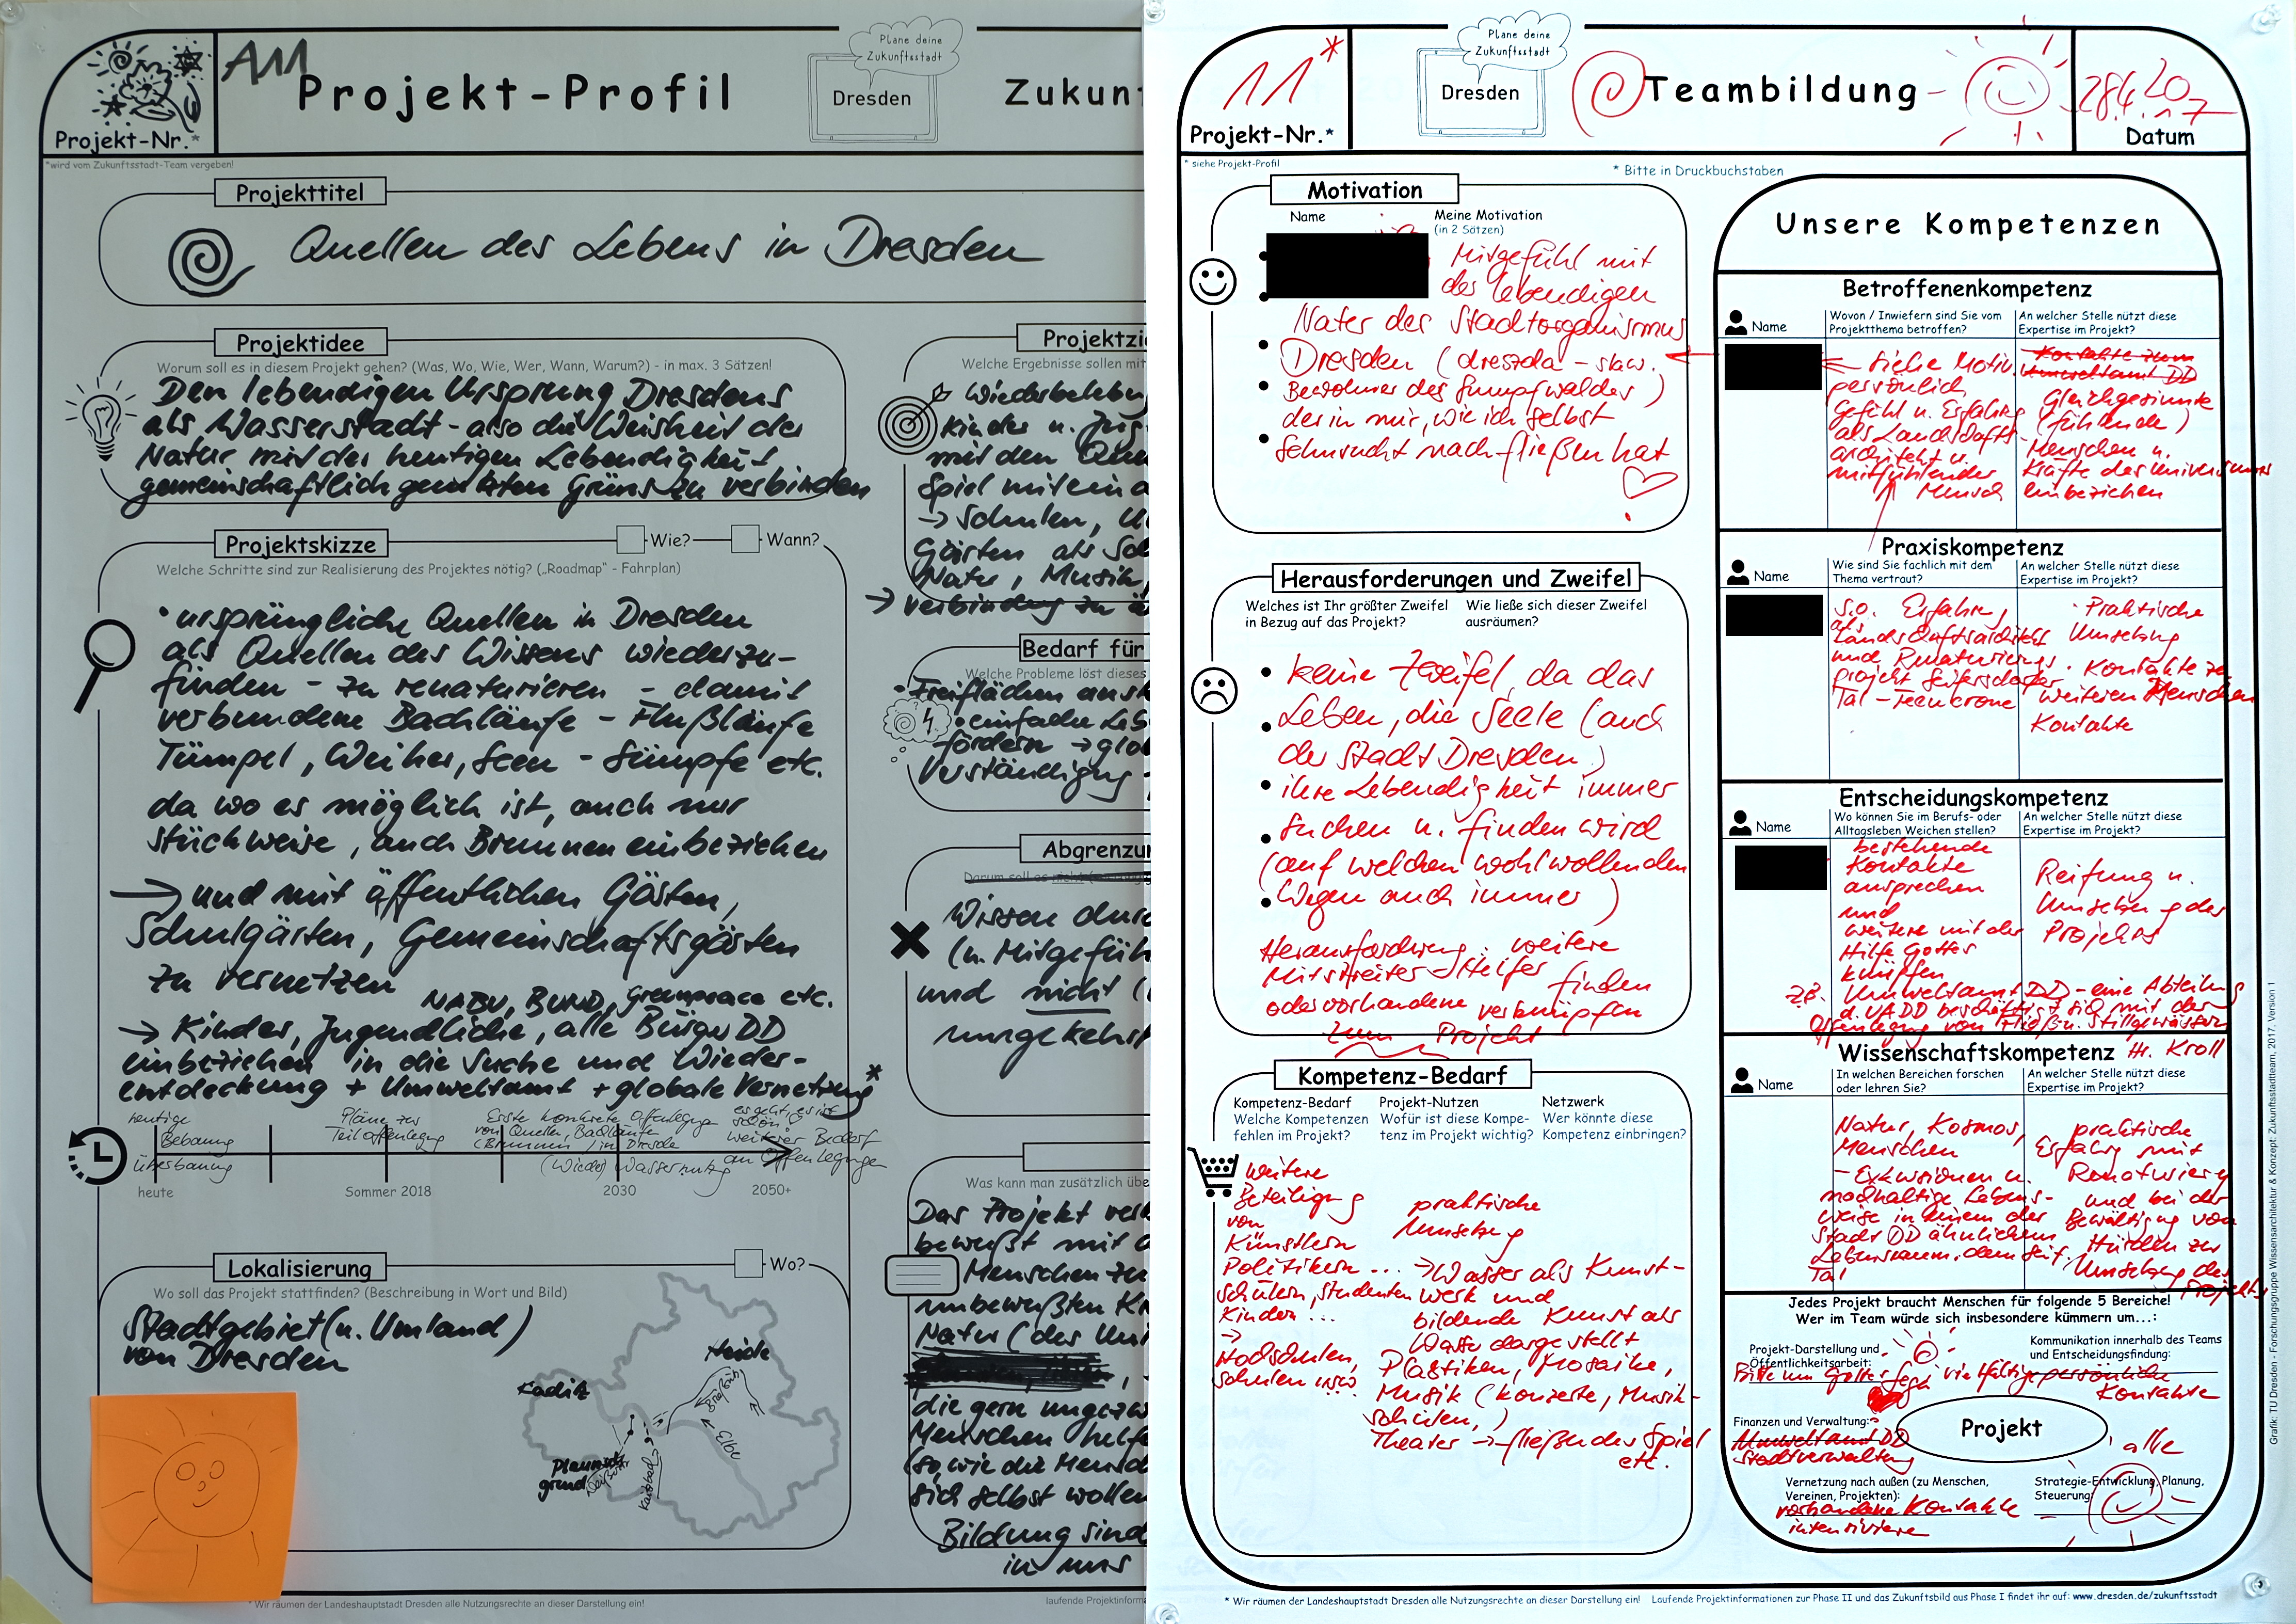 A11
Projekt-Profil
Plane deine
Zukunftsstadt
Dresden
Zukun
Projekt-Nr.*
*wird vom Zukunftsstadt-Team vergeben!
Projekttitel
Quellen des Lebens in Dresden
Projektidee
Worum soll es in diesem Projekt gehen? (Was, Wo, Wie, Wer, Wann, Warum?) - in max. 3 Sätzen!
Den lebendigen Ursprung Dresdens
als Wasserstadt - also die Weisheit der
Natur mit der heutigen Lebendigkeit
gemeinschaftlich genutzten Grüns zu verbinden
Projektskizze
Wie?
Wann?
Welche Schritte sind zur Realisierung des Projektes nötig? („Roadmap“ - Fahrplan)
• ursprüngliche Quellen in Dresden
als Quellen des Wissens wiederzu-
finden - zu renaturieren - damit
verbundene Bachläufe - Flußläufe
Tümpel, Weiher, Seen - Sümpfe etc.
da wo es möglich ist, auch nur
stückweise, auch Brunnen einbeziehen
→ und mit öffentlichen Gärten,
Schulgärten, Gemeinschaftsgärten
zu vernetzen
NABU, BUND, Greenpeace etc.
→ Kinder, Jugendliche, alle Bürger DD
einbeziehen in die Suche und Wieder-
entdeckung + Umweltamt + globale Vernetzung*
heutige
Bebauung
Überbauung
Pläne zur
Teiloffenlegung
Erste konkrete Offenlegung
von Quellen, Bachläufen
(Brunnen) in Dresden
(Wieder) Wassernutzung
es geht, es ist
schön!
weiterer Bedarf
an Offenlegungen
heute
Sommer 2018
2030
2050+
Lokalisierung
Wo?
Wo soll das Projekt stattfinden? (Beschreibung in Wort und Bild)
Stadtgebiet (u. Umland)
von Dresden
Heide
Kaditz
Elbe
Plauensch
grund
Kaitzbach
* Wir räumen der Landeshauptstadt Dresden alle Nutzungsrechte an dieser Darstellung ein!
laufende Projektinforma
Projektzie
Welche Ergebnisse sollen mit
Wiederbelebun
Kinder u. Jug
mit den Que
Spiel miteina
→ Schulen, U
Gärten als Sc
Natur, Musik,
→ Verbindung zu ä
Bedarf für
Welche Probleme löst dieses
• Freiflächen aus
• einfache Leb
fördern → glo
Verständigung
Abgrenzu
Wissen durc
(u. Mitgefüh
und nicht (
umgekehrt
Was kann man zusätzlich übe
Das Projekt ver
bewußt mit d
Menschen zu
unbewußten K
Natur (des Uni
die gern ungezw
Menschen helfe
(so, wie die Mensc
sich selbst wollen
Bildung sind
in uns
11*
Projekt-Nr.*
* siehe Projekt-Profil
Plane deine
Zukunftsstadt
Dresden
Teambildung
28.4.2017
Datum
* Bitte in Druckbuchstaben
Motivation
Name
Meine Motivation
(in 2 Sätzen)
Mitgefühl mit
der lebendigen
Natur des Stadtorganismus
Dresden (drezda - slaw.
Bewohner des Sumpfwaldes)
der in mir, wie ich selbst
Sehnsucht nach fließen hat
Herausforderungen und Zweifel
Welches ist Ihr größter Zweifel
in Bezug auf das Projekt?
Wie ließe sich dieser Zweifel
ausräumen?
• keine Zweifel, da das
• Leben, die Seele (auch
der Stadt Dresden)
• ihre Lebendigkeit immer
• suchen u. finden wird
(auf welchen wohlwollenden
• Wegen auch immer)
Herausforderung: weitere
Mitstreiter - Helfer finden
oder vorhandene verknüpfen
zum Projekt
Kompetenz-Bedarf
Kompetenz-Bedarf
Welche Kompetenzen
fehlen im Projekt?
Projekt-Nutzen
Wofür ist diese Kompe-
tenz im Projekt wichtig?
Netzwerk
Wer könnte diese
Kompetenz einbringen?
weitere
Beteiligung
von
Künstlern
Politikern ...
Schülern, Studenten
Kindern ...
→
Hochschulen,
Schulen usw.
praktische
Umsetzung
→ Wasser als Kunst-
werk und
bildende Kunst als
Wasser dargestellt
Plastiken, Mosaike,
Musik (Konzerte, Musik-
schulen,)
Theater → fließendes Spiel
etc.
Unsere Kompetenzen
Betroffenenkompetenz
Name
Wovon / Inwiefern sind Sie vom
Projektthema betroffen?
An welcher Stelle nützt diese
Expertise im Projekt?
← siehe Motiv.
persönlich
Gefühl u. Erfahrg
als Landschafts-
architekt u.
mitfühlender
Mensch
Kontakte zum
Umweltamt DD
Gleichgesinnte
(fühlende)
Menschen u.
Kräfte des Universums
einbeziehen
Praxiskompetenz
Name
Wie sind Sie fachlich mit dem
Thema vertraut?
An welcher Stelle nützt diese
Expertise im Projekt?
s.o. Erfahrg,
als
Landschaftsarchitekt
und Renaturierungs-
projekt Seifersdorfer
Tal -
• Praktische
Umsetzung
• Kontakte zu
weiteren Menschen
Kontakte
Entscheidungskompetenz
Name
Wo können Sie im Berufs- oder
Alltagsleben Weichen stellen?
An welcher Stelle nützt diese
Expertise im Projekt?
bestehende
Kontakte
ansprechen
und
weitere mit der
Hilfe Gottes
knüpfen
Reifung u.
Umsetzung des
Projekts
z.B. Umweltamt DD - eine Abteilung
d. UA DD beschäftigt sich mit der
Offenlegung von Fließ- u. Stillgewässern
Hr. Kroll
Wissenschaftskompetenz
Name
In welchen Bereichen forschen
oder lehren Sie?
An welcher Stelle nützt diese
Expertise im Projekt?
Natur, Kosmos,
Menschen
- Exkursionen u.
nachhaltige Lebens-
weise in einem der
Stadt DD ähnlichen
Lebensraum, dem Seif.
Tal
praktische
Erfahrg mit
Renaturierg
und bei der
Bewältigung von
Hürden zur
Umsetzung des
Projekts
Jedes Projekt braucht Menschen für folgende 5 Bereiche!
Wer im Team würde sich insbesondere kümmern um...:
Projekt-Darstellung und
Öffentlichkeitsarbeit:
Bitte um Gottes Segen
Kommunikation innerhalb des Teams
und Entscheidungsfindung:
vielfältige persönliche
Kontakte
Finanzen und Verwaltung:
Umweltamt DD
Stadtverwaltung
Projekt
alle
Vernetzung nach außen (zu Menschen,
Vereinen, Projekten):
vorhandene Kontakte
intensivieren
Strategie-Entwicklung, Planung,
Steuerung:
* Wir räumen der Landeshauptstadt Dresden alle Nutzungsrechte an dieser Darstellung ein!
Laufende Projektinformationen zur Phase II und das Zukunftsbild aus Phase I findet ihr auf: www.dresden.de/zukunftsstadt
Grafik: TU Dresden - Forschungsgruppe Wissensarchitektur & Konzept: Zukunftsstadtteam, 2017, Version 1